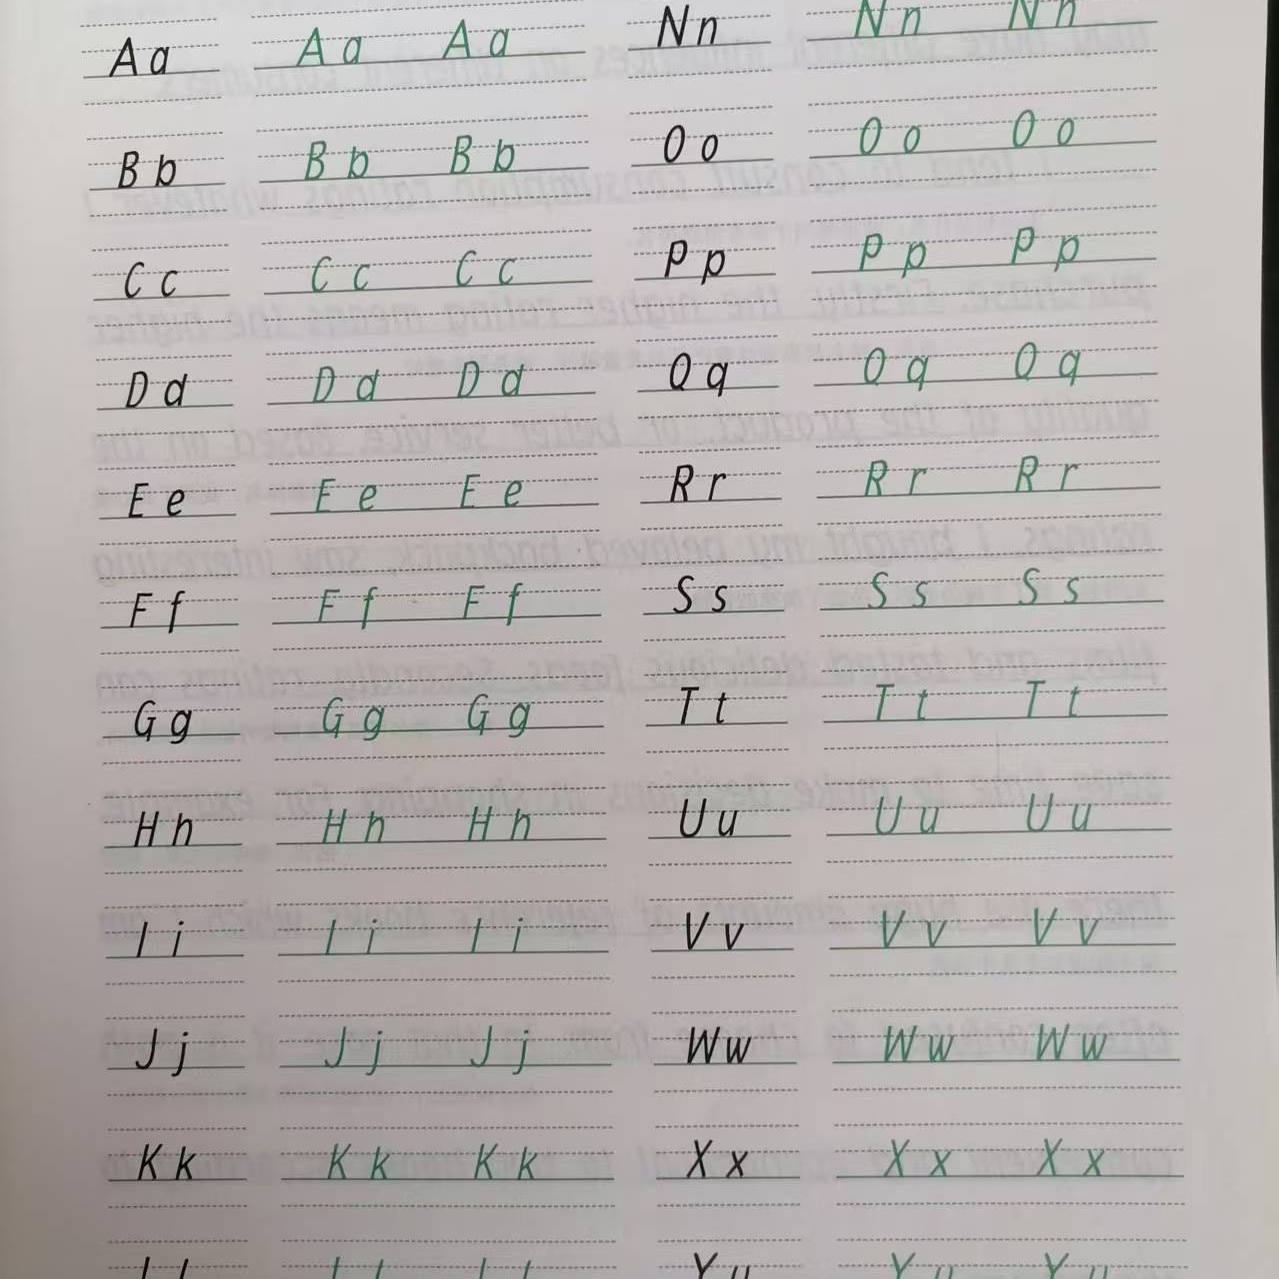 Aa Aa Aa Nn Nn Nn
Bb Bb Bb Oo Oo Oo
Cc Cc Cc Pp Pp Pp
Dd Dd Dd Qq Qq Qq
Ee Ee Ee Rr Rr Rr
Ff Ff Ff Ss Ss Ss
Gg Gg Gg Tt Tt Tt
Hh Hh Hh Uu Uu Uu
Ii Ii Ii Vv Vv Vv
Jj Jj Jj Ww Ww Ww
Kk Kk Kk Xx Xx Xx